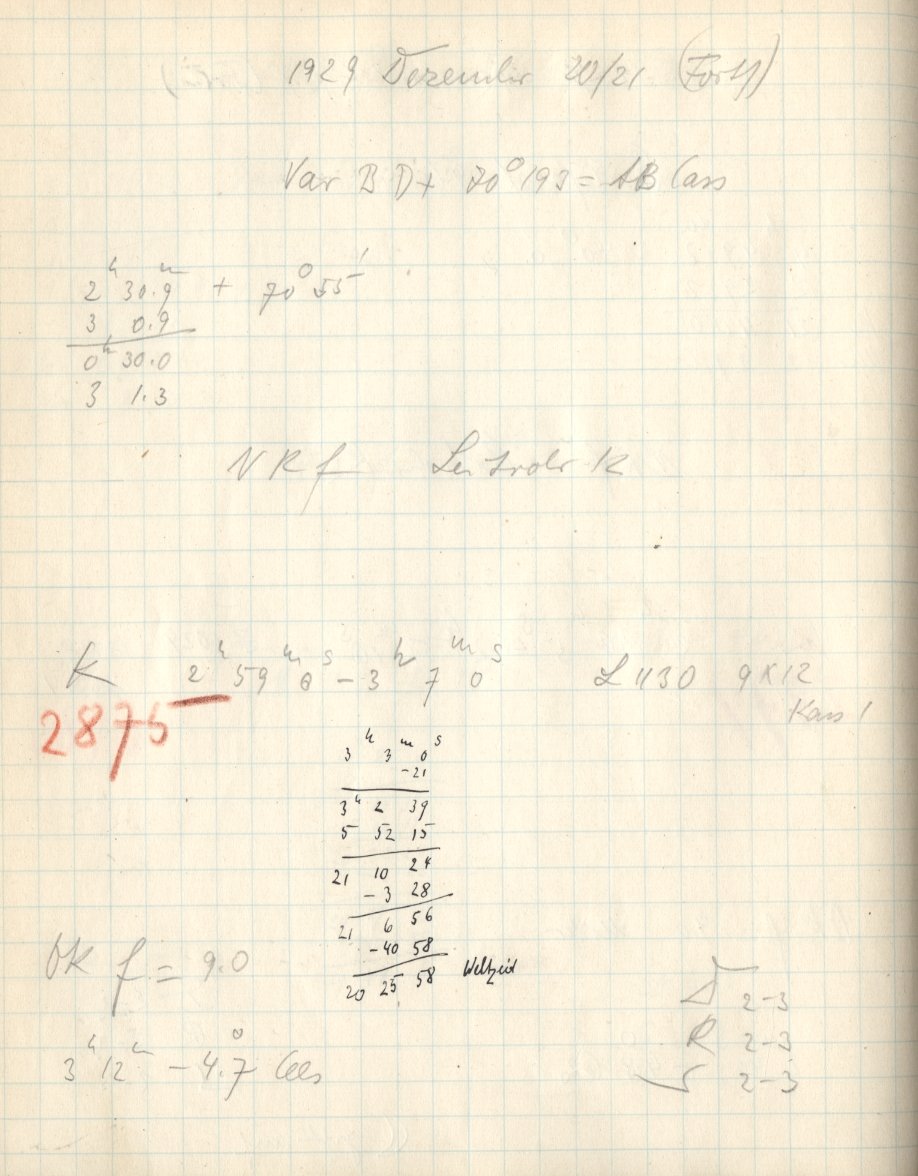 1929 Dezember 20/21 (Forts)
Var BD + 70° 193 = AB Cass
2ʰ 30.9ᵐ + 70° 55'
3 0.9
0ʰ 30.0
3 1.3
NRf Leitrohr K
K 2ʰ 59ᵐ 0ˢ – 3ʰ 7ᵐ 0ˢ L 1130 9x12
Kass 1
2875
3ʰ 3ᵐ 0ˢ
-21
3ʰ 2 39
5 52 15
21 10 24
-3 28
21 6 56
-40 58
20 25 58 Weltzeit
OK f = 9.0
3ʰ 12ᵐ – 4.7° Cels
D 2-3
R 2-3
S 2-3